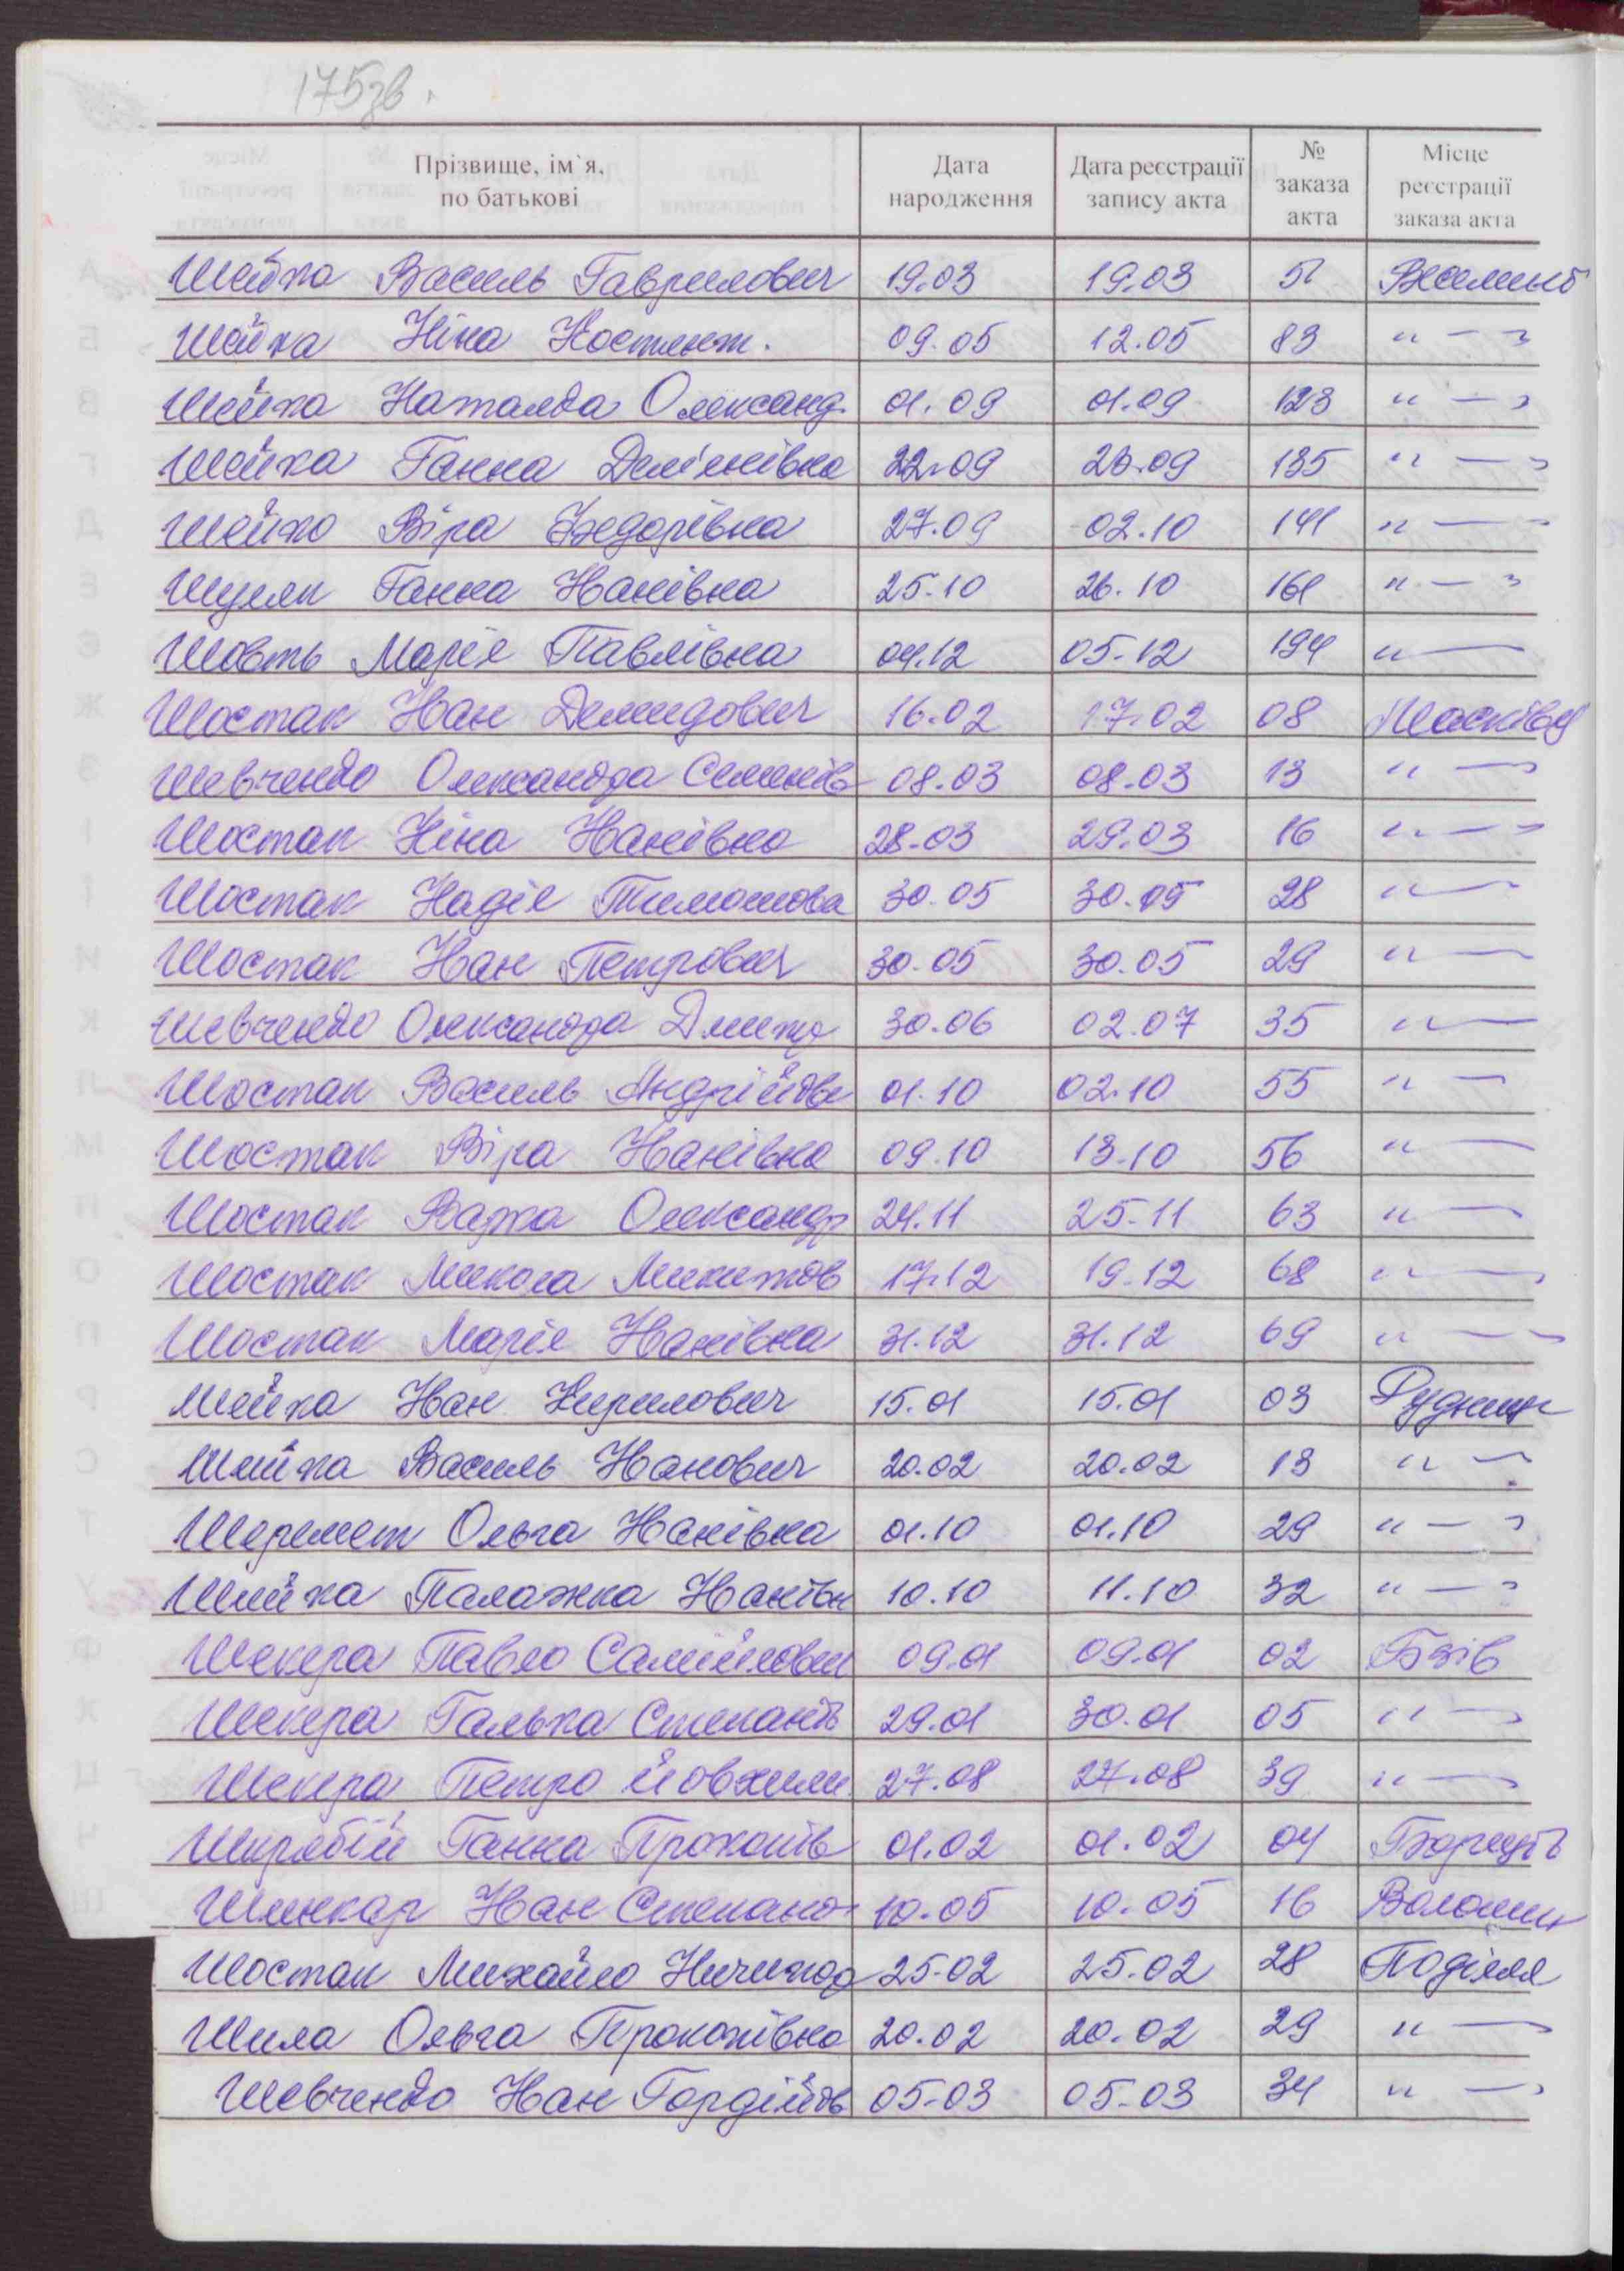 175зв.
Прізвище, ім`я, по батькові Дата народження Дата реєстрації запису акта № заказа акта Місце реєстрації заказа акта
Шейка Василь Гаврилович 19.03 19.03 51
Шейка Ніна Костянт. 09.05 12.05 83 " — "
Шейка Наталка Олександ. 01.09 01.09 123 " — "
Шейка Ганна 22.09 26.09 135 " — "
Шейко Віра Федорівна 27.09 02.10 141 " —
Шуляк Ганна Іванівна 25.10 26.10 161 " — "
Шовть Марія Павлівна 04.12 05.12 194 " —
Шостак Іван Демидович 16.02 17.02 08 Масківц
Шевченко Олександра Семенів 08.03 08.03 13 " —
Шостак Ніна Іванівна 28.03 29.03 16 " — "
Шостак Надія Тимошова 30.05 30.05 28 " —
Шостак Іван Петрович 30.05 30.05 29 " —
Шевченко Олександра Дмитр 30.06 02.07 35 " —
Шостак Василь Андрійов 01.10 02.10 55 " —
Шостак Віра Іванівна 09.10 13.10 56 " —
Шостак Варка Олександр 24.11 25.11 63 " —
Шостак Микола Микитов 17.12 19.12 68 " —
Шостак Марія Іванівна 31.12 31.12 69 " —
Шейка Іван Кирилович 15.01 15.01 03 Рудниц
Шийка Василь Іванович 20.02 20.02 13 " —
Шеремет Ольга Іванівна 01.10 01.10 29 " — "
Шийка Палажка Іванівн 10.10 11.10 32 " — "
Шекера Павло Самійлови 09.01 09.01 02 Бзів
Шекера Галька Степанів 29.01 30.01 05 " —
Шекера Петро Йовхим 27.08 27.08 39 " —
Ганна Прокопів 01.02 01.02 04 Борщів
Шинкар Іван Степано 10.05 10.05 16 Волошин
Шостак Михайло Ничипор 25.02 25.02 28 Поділля
Шила Ольга Прокопівна 20.02 20.02 29 " —
Шевченко Іван Гордійов 05.03 05.03 34 " — "